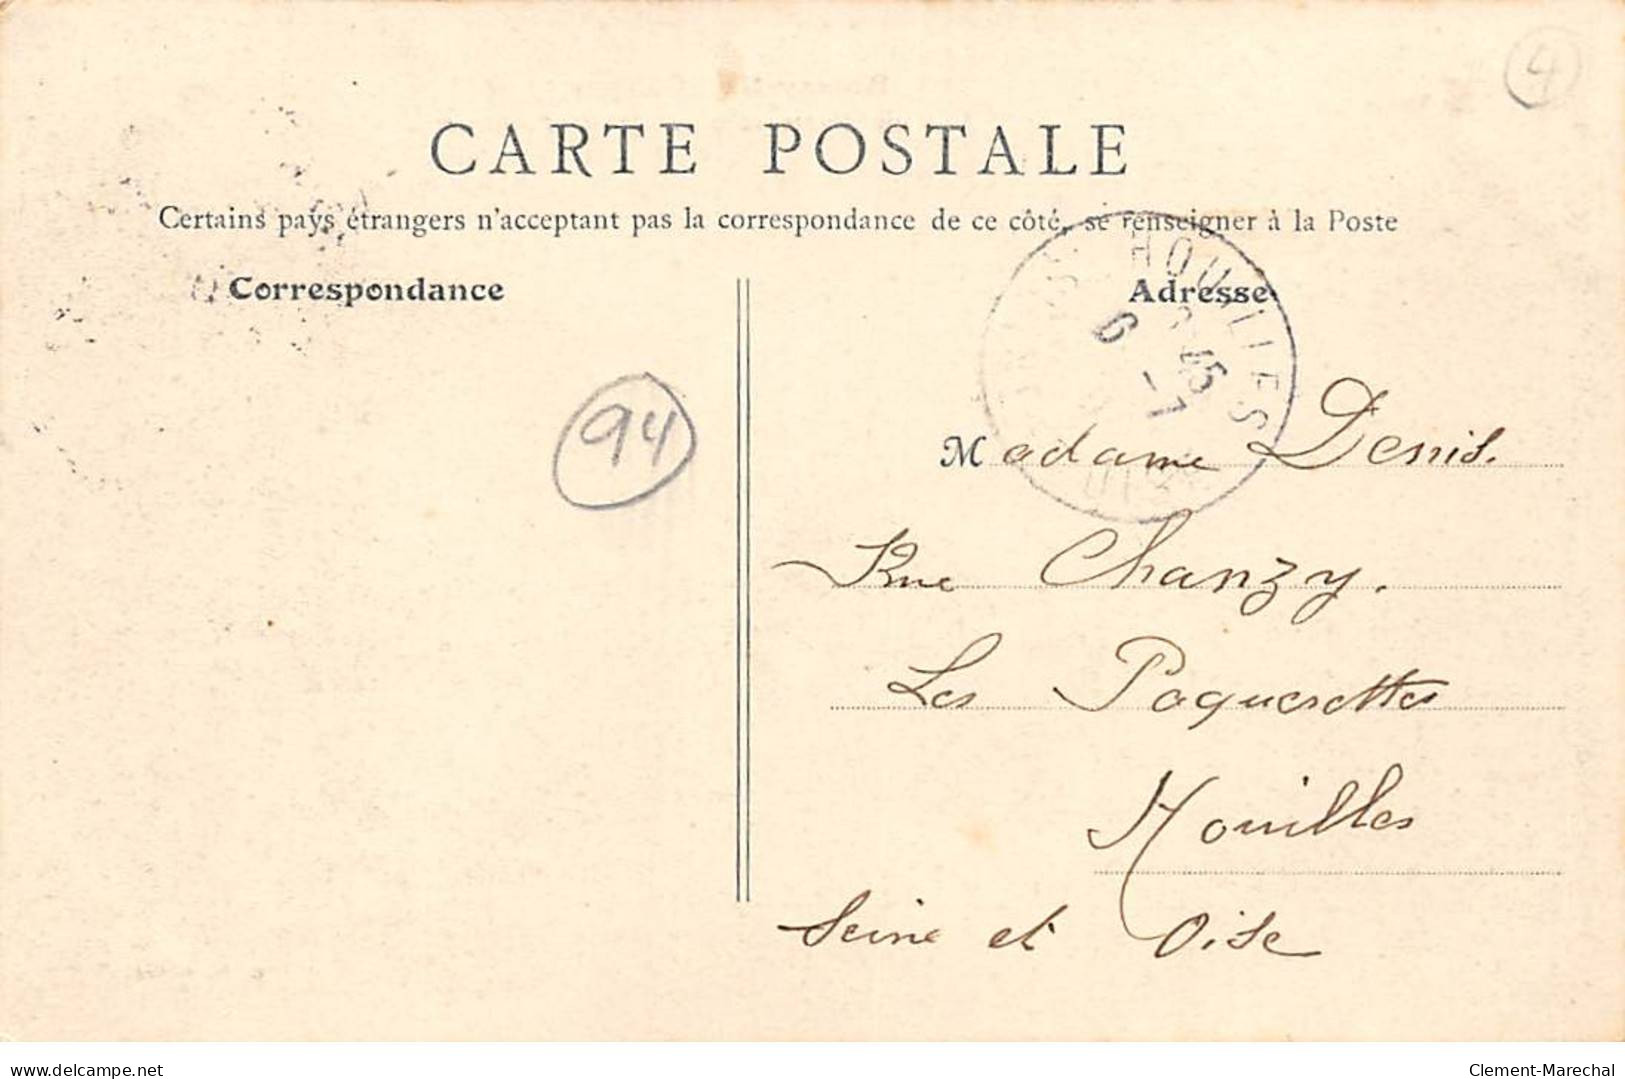 4
CARTE POSTALE
Certains pays étrangers n'acceptant pas la correspondance de ce côté, se renseigner à la Poste
Correspondance
Adresse
HOUILLES
6 - 7
94
Madame Denis.
Rue Chanzy.
Les Paquerettes
Houilles
Seine et Oise
www.delcampe.net
Clement-Marechal